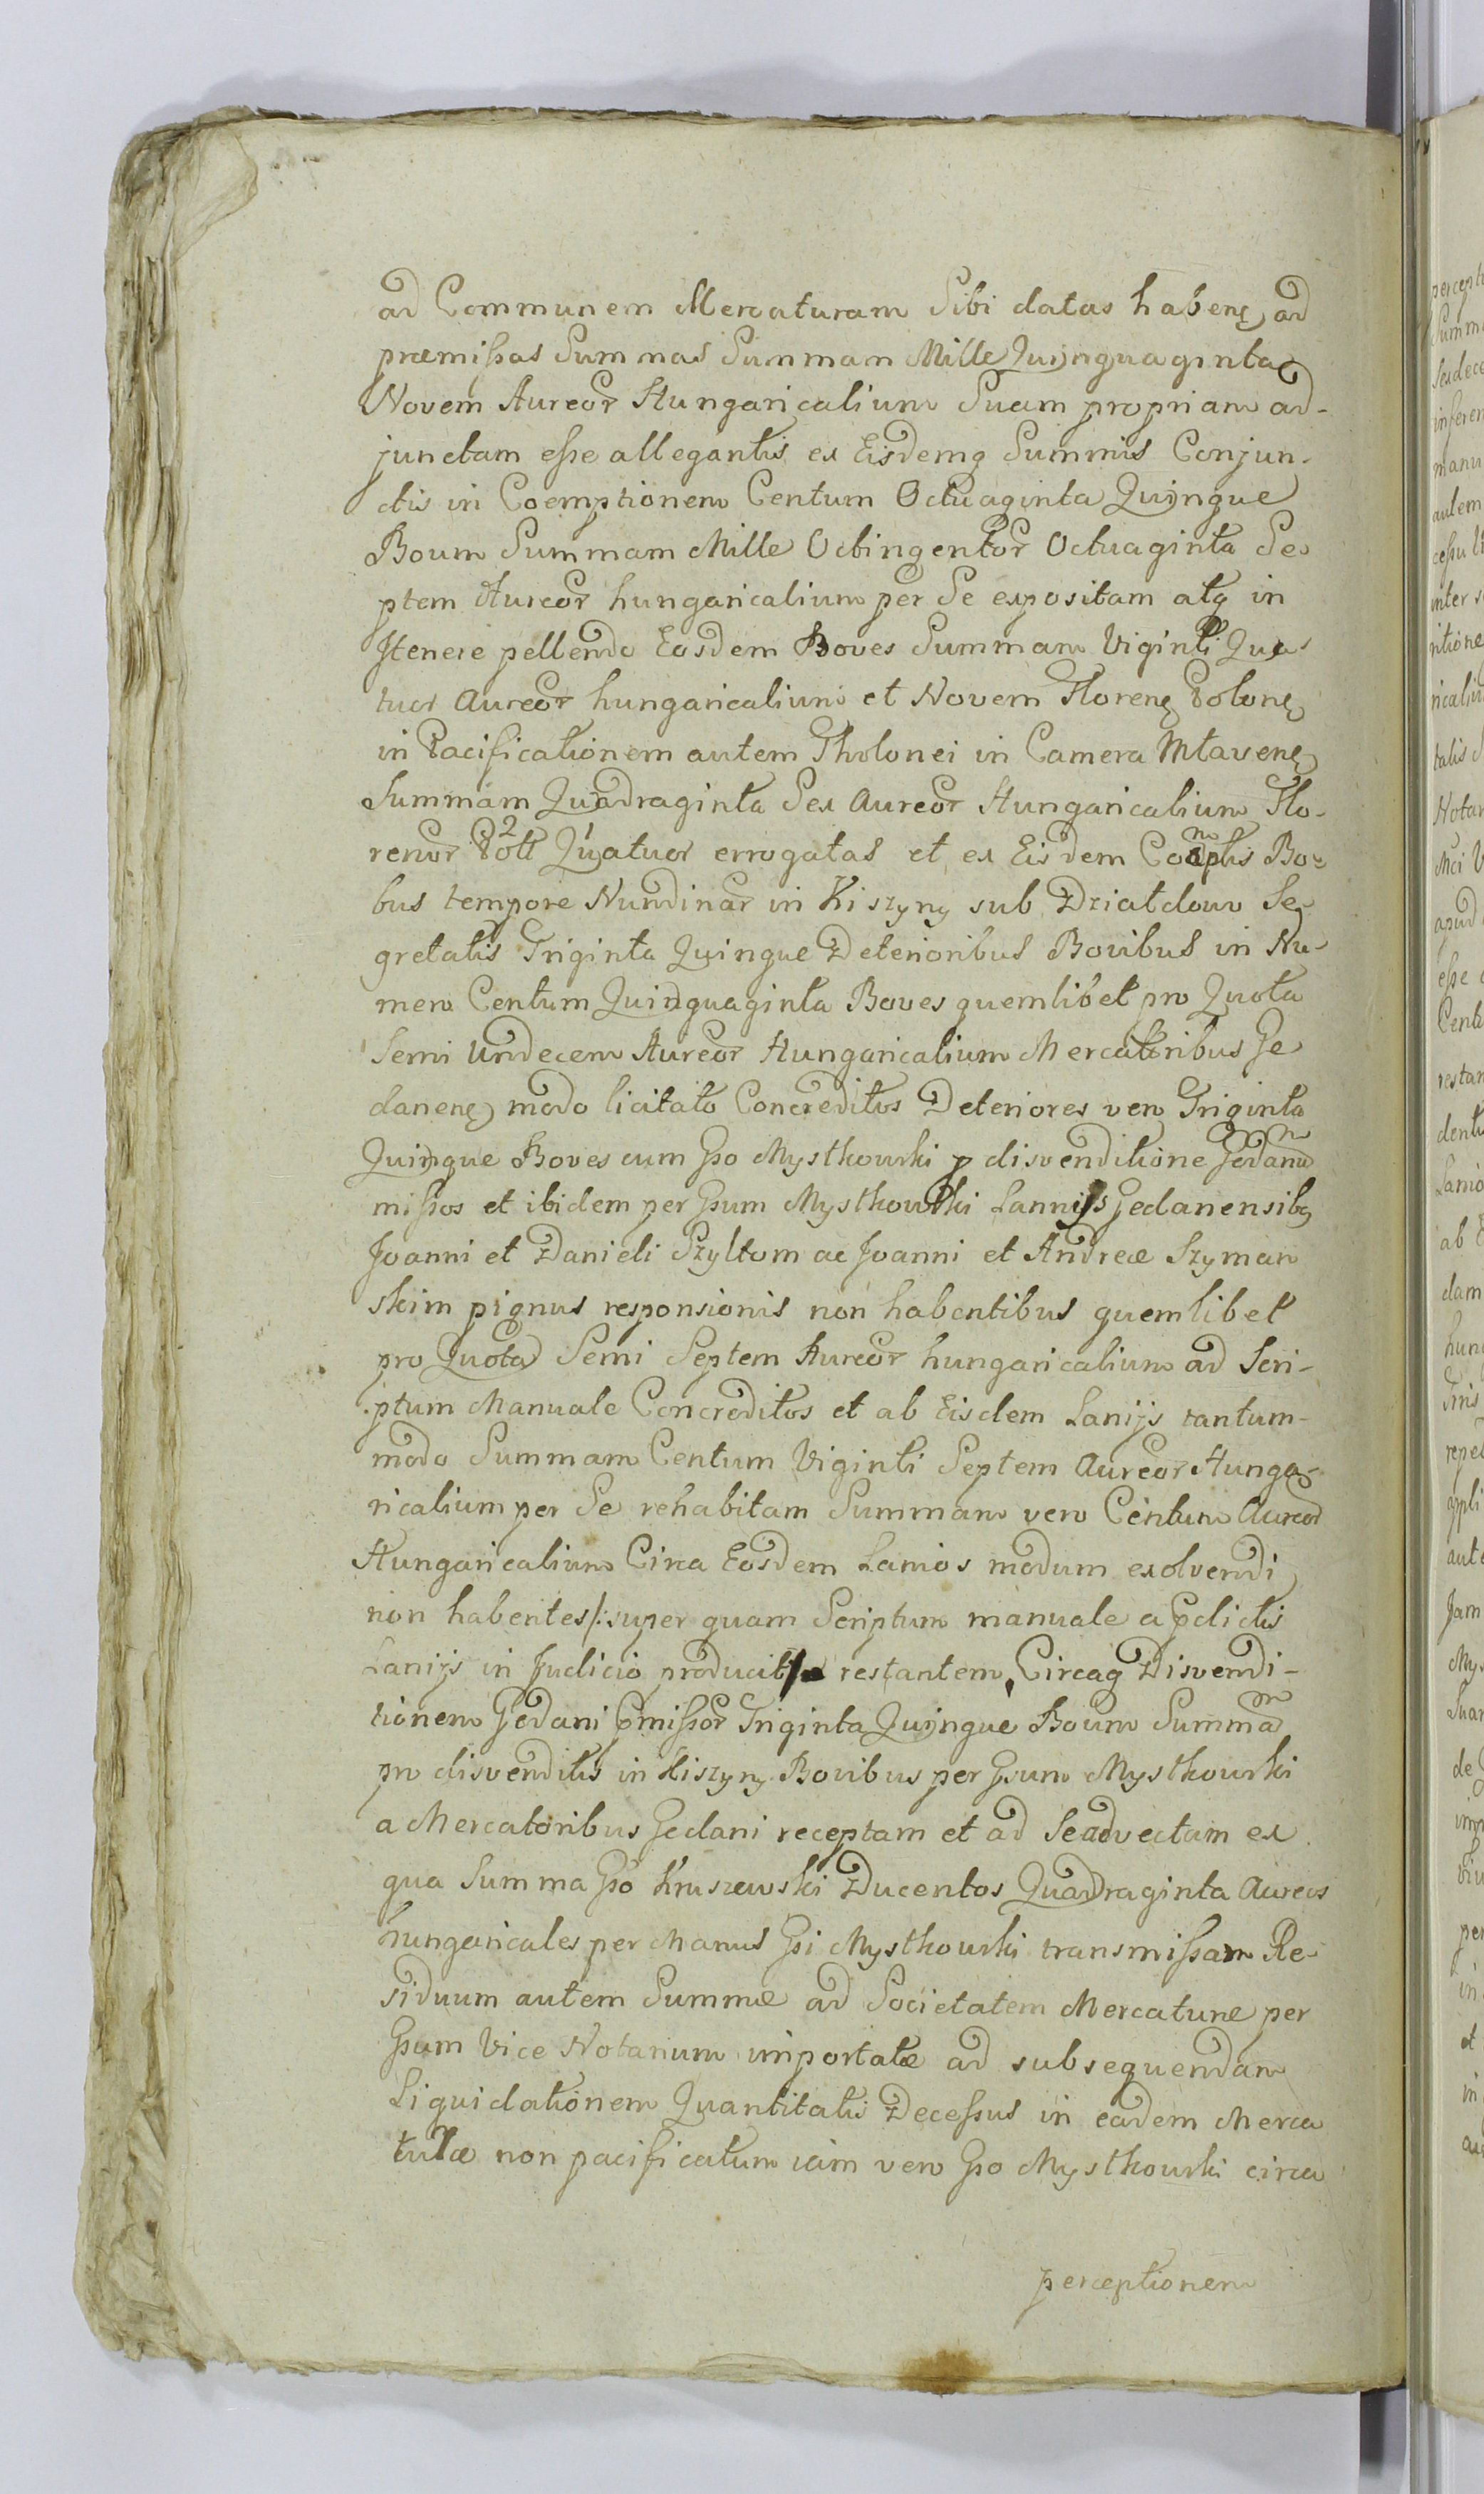 ad Communem Mercaturam Sibi datas habenς ad
præmissas Summas Summam Mille Quinquaginta
Novem Aureor Hungaricalium Suam propriam ad-
junctam esse allegantis ex Eisdemq Summis Conjun-
ctis in Coemptionem Centum Octuaginta Quinque
Boum Summam Mille Octingentor Octuaginta Se
ptem Aureor hungaricalium per Se expositam atq in
Itenere pellendo Eosdem Boves Summam Viginti Qua
tuor Aureor hungaricalium et Novem Florenς Polonς
in Pacificationem autem Tholonei in Camera Mlavenς
Summam Quadraginta Sex Aureor Hungaricalium Flo-
renor Poll Quatuor errogatas et ex Eisdem Bo-
bus tempore Nundinar in Kiszyny sub Dziatdow Se
gretatis Triginta Quinque Deterioribus Bovibus in Nu-
mero Centum Quinquaginta Boves quemlibet pro Quota
Semi Undecem Aureor Hungaricalium Mercatoribus Ge
danenς modo licitato Concreditos Deteriores vero Triginta
Quinque Boves cum Gso Mysthowski p disvenditione Gedanu
missos et ibidem per Gsum Mysthowski Lannijs Gedanensibς
Joanni et Danieli Szyltom ac Joanni et Andreæ Szyman
skim pignus responsionis non habentibus quemlibet
pro Quota Semi Septem Aureor hungaricalium ad Scri-
ptum Manuale Concreditos et ab Eisdem Lanijs tantum-
modo Summam Centum Viginti Septem Aureor Hunga-
ricalium per Se rehabitam Summam vero Centum Aureor
Hungaricalium Circa Eosdem Lanios modum exolvendi
non habentes /: super quam Scriptum manuale a
Lanijs in Judicio producit restantem, Circaq Disvendi-
tionem Gedani missor Triginta Quinque Boum Summa
pro disvenditis in Kiszyny Bovibus per Gsum Mysthowski
a Mercatoribus Gedani receptam et ad Se advectam ex
qua Summa Gso Kruszewski Ducentos Quadraginta Aureos
hungaricales per Manus Gsi Mysthowski transmissam Re-
siduum autem Summæ ad Societatem Mercaturæ per
Gsum Vice Notarium importatæ ad subsequendam
Liquidationem Quantitatis Decessus in eadem Merca
turæ non pacificatum iam vero Gso Mysthowski circa
perceptionem